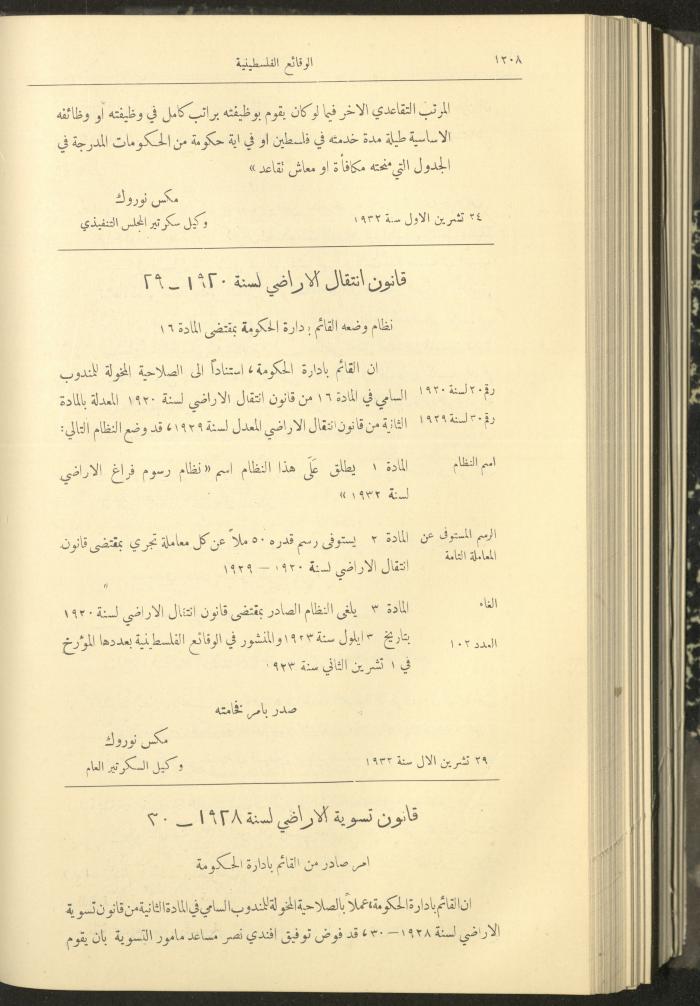 ١٣٠٨
الوقائع الفلسطينية
المرتب التقاعدي الاخر فيما لو كان يقوم بوظيفته براتب كامل في وظيفته أو وظائفه
الاساسية طيلة مدة خدمته في فلسطين او في اية حكومة من الحكومات المدرجة في
الجدول التي منحته مكافأة او معاش تقاعد»
مكس نوروك
٢٤ تشرين الاول سنة ١٩٣٢
وكيل سكرتير المجلس التنفيذي
قانون انتقال الاراضي لسنة ١٩٢٠ – ٢٩
نظام وضعه القائم بادارة الحكومة بمقتضى المادة ١٦
ان القائم بادارة الحكومة، استناداً الى الصلاحية المخولة للمندوب
رقم ٢٠ لسنة ١٩٢٠
السامي في المادة ١٦ من قانون انتقال الاراضي لسنة ١٩٢٠ المعدلة بالمادة
رقم ٣٠ لسنة ١٩٢٩
الثانية من قانون انتقال الاراضي المعدل لسنة ١٩٢٩، قد وضع النظام التالي:
اسم النظام
المادة ١ يطلق عَلَى هذا النظام اسم «نظام رسوم فراغ الاراضي
لسنة ١٩٣٢»
الرسم المستوفى عن
المعاملة التامة
المادة ٢ يستوفى رسم قدره ٥٠ ملاً عن كل معاملة تجري بمقتضى قانون
انتقال الاراضي لسنة ١٩٢٠ – ١٩٢٩
الغاء
المادة ٣ يلغى النظام الصادر بمقتضى قانون انتقال الاراضي لسنة ١٩٢٠
العدد ١٠٢
بتاريخ ٣ ايلول سنة ١٩٢٣ والمنشور في الوقائع الفلسطينية بعددها المؤرخ
في ١ تشرين الثاني سنة ٩٢٣
صدر بامر فخامته
مكس نوروك
٢٩ تشرين الال سنة ١٩٣٢
وكيل السكرتير العام
قانون تسوية الاراضي لسنة ١٩٢٨ – ٣٠
امر صادر من القائم بادارة الحكومة
ان القائم بادارة الحكومة، عملاً بالصلاحية المخولة للمندوب السامي في المادة الثانية من قانون تسوية
الاراضي لسنة ١٩٢٨ – ٣٠، قد فوض توفيق افندي نصر مساعد مامور التسوية بان يقوم